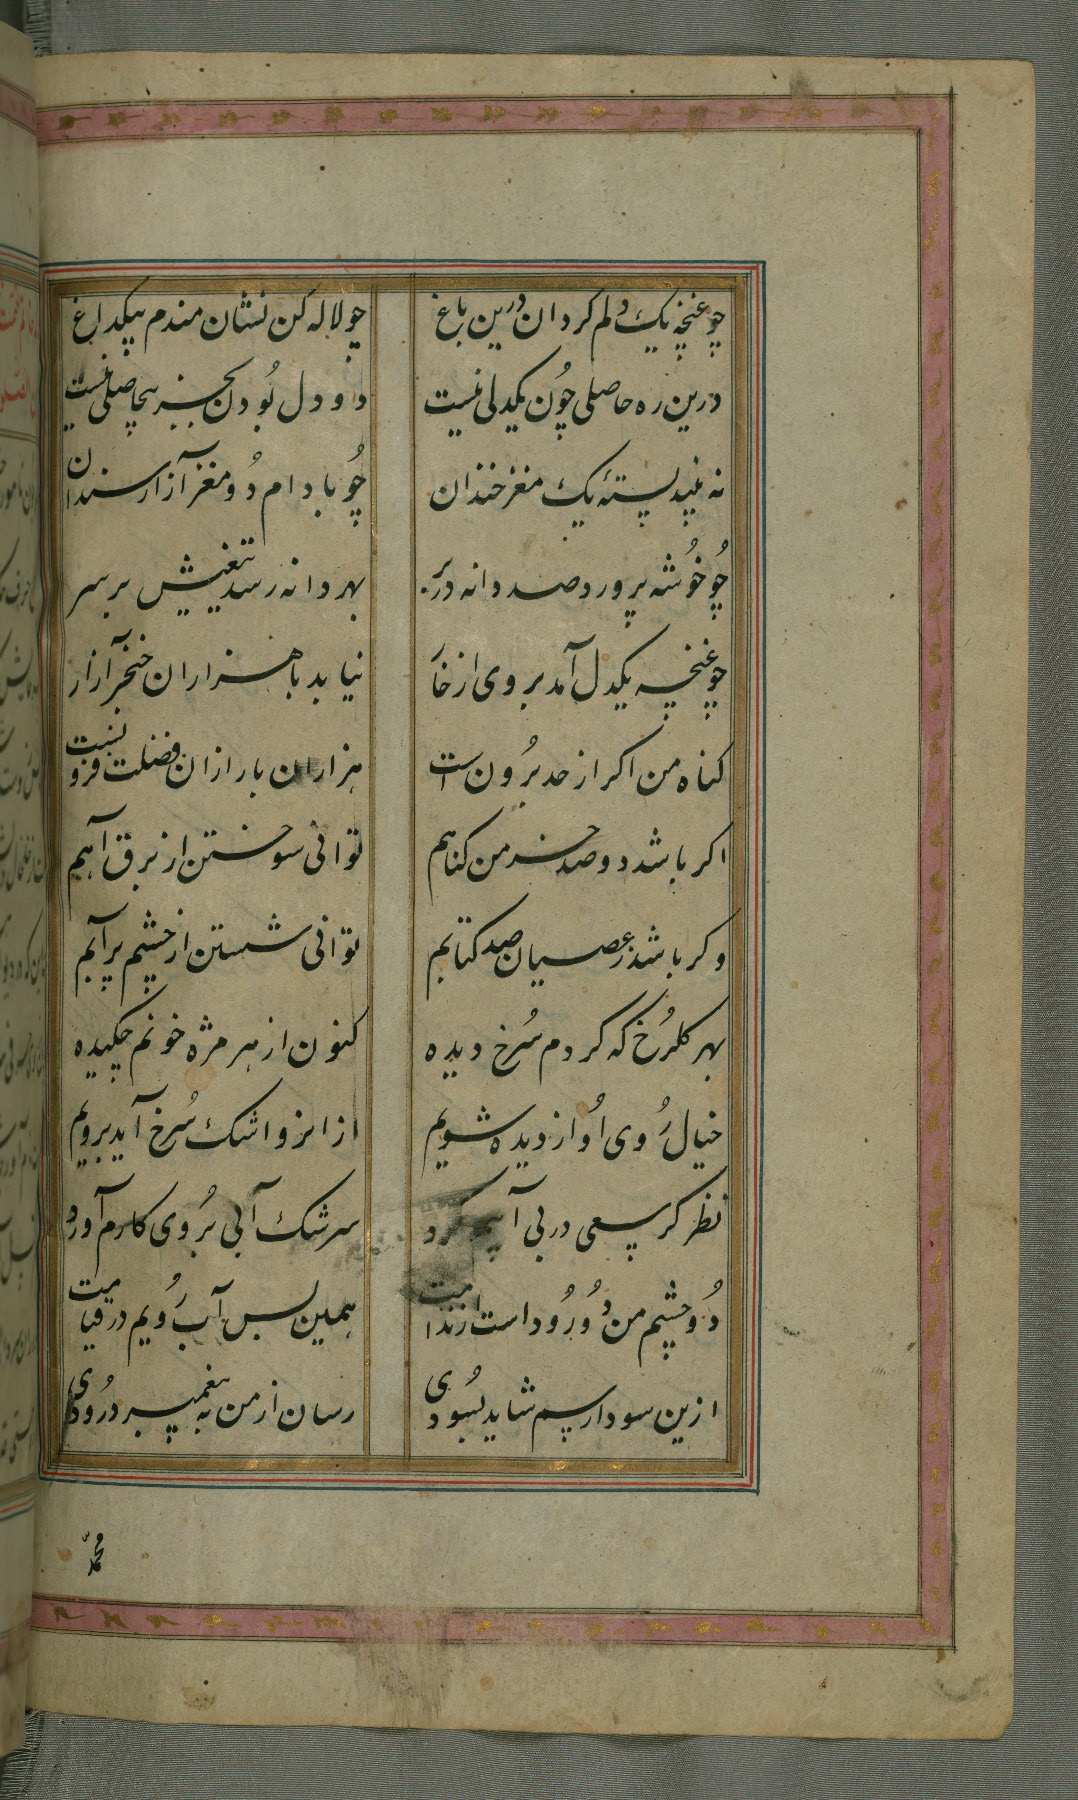 چو غنچه یک دلم گردان درین باغ
چو لاله کن نشانمندم بیکداغ
درین ره حاصلی چون یکدلی نیست
دو دل بودن بجز بیحاصلی نیست
نه بیند پسته یک مغز خندان
چو بادام دو مغز آزار سندان
چو خوشه پرورد صد دانه در بر
بهر دانه رسد تیغیش بر سر
چو غنچه یکدل آمد بروی از خار
نیابد با هزاران خنجر آزار
کناه من اکر از حد برون است
هزاران بار ازان فضلت فزونست
اکر باشد دو صد خرمن کناهم
توانی سوختن از برق آهم
وکر باشد ز عصیان صد کتابم
توانی شستن از چشم پر آبم
بهر کلرخ که کردم سرخ دیده
کنون از هر مژه خونم چکیده
خیال روی او از دیده شویم
ازانرو اشک سرخ آید برویم
نظر کر سعی در بی کرد
سرشک آبی بروی کارم آورد
دو چشم من دو رود است از ندامت
همین بس آب رویم در قیامت
ازین سودا رسم شاید بسودی
رسان از من به پیغمبر درودی
محمد